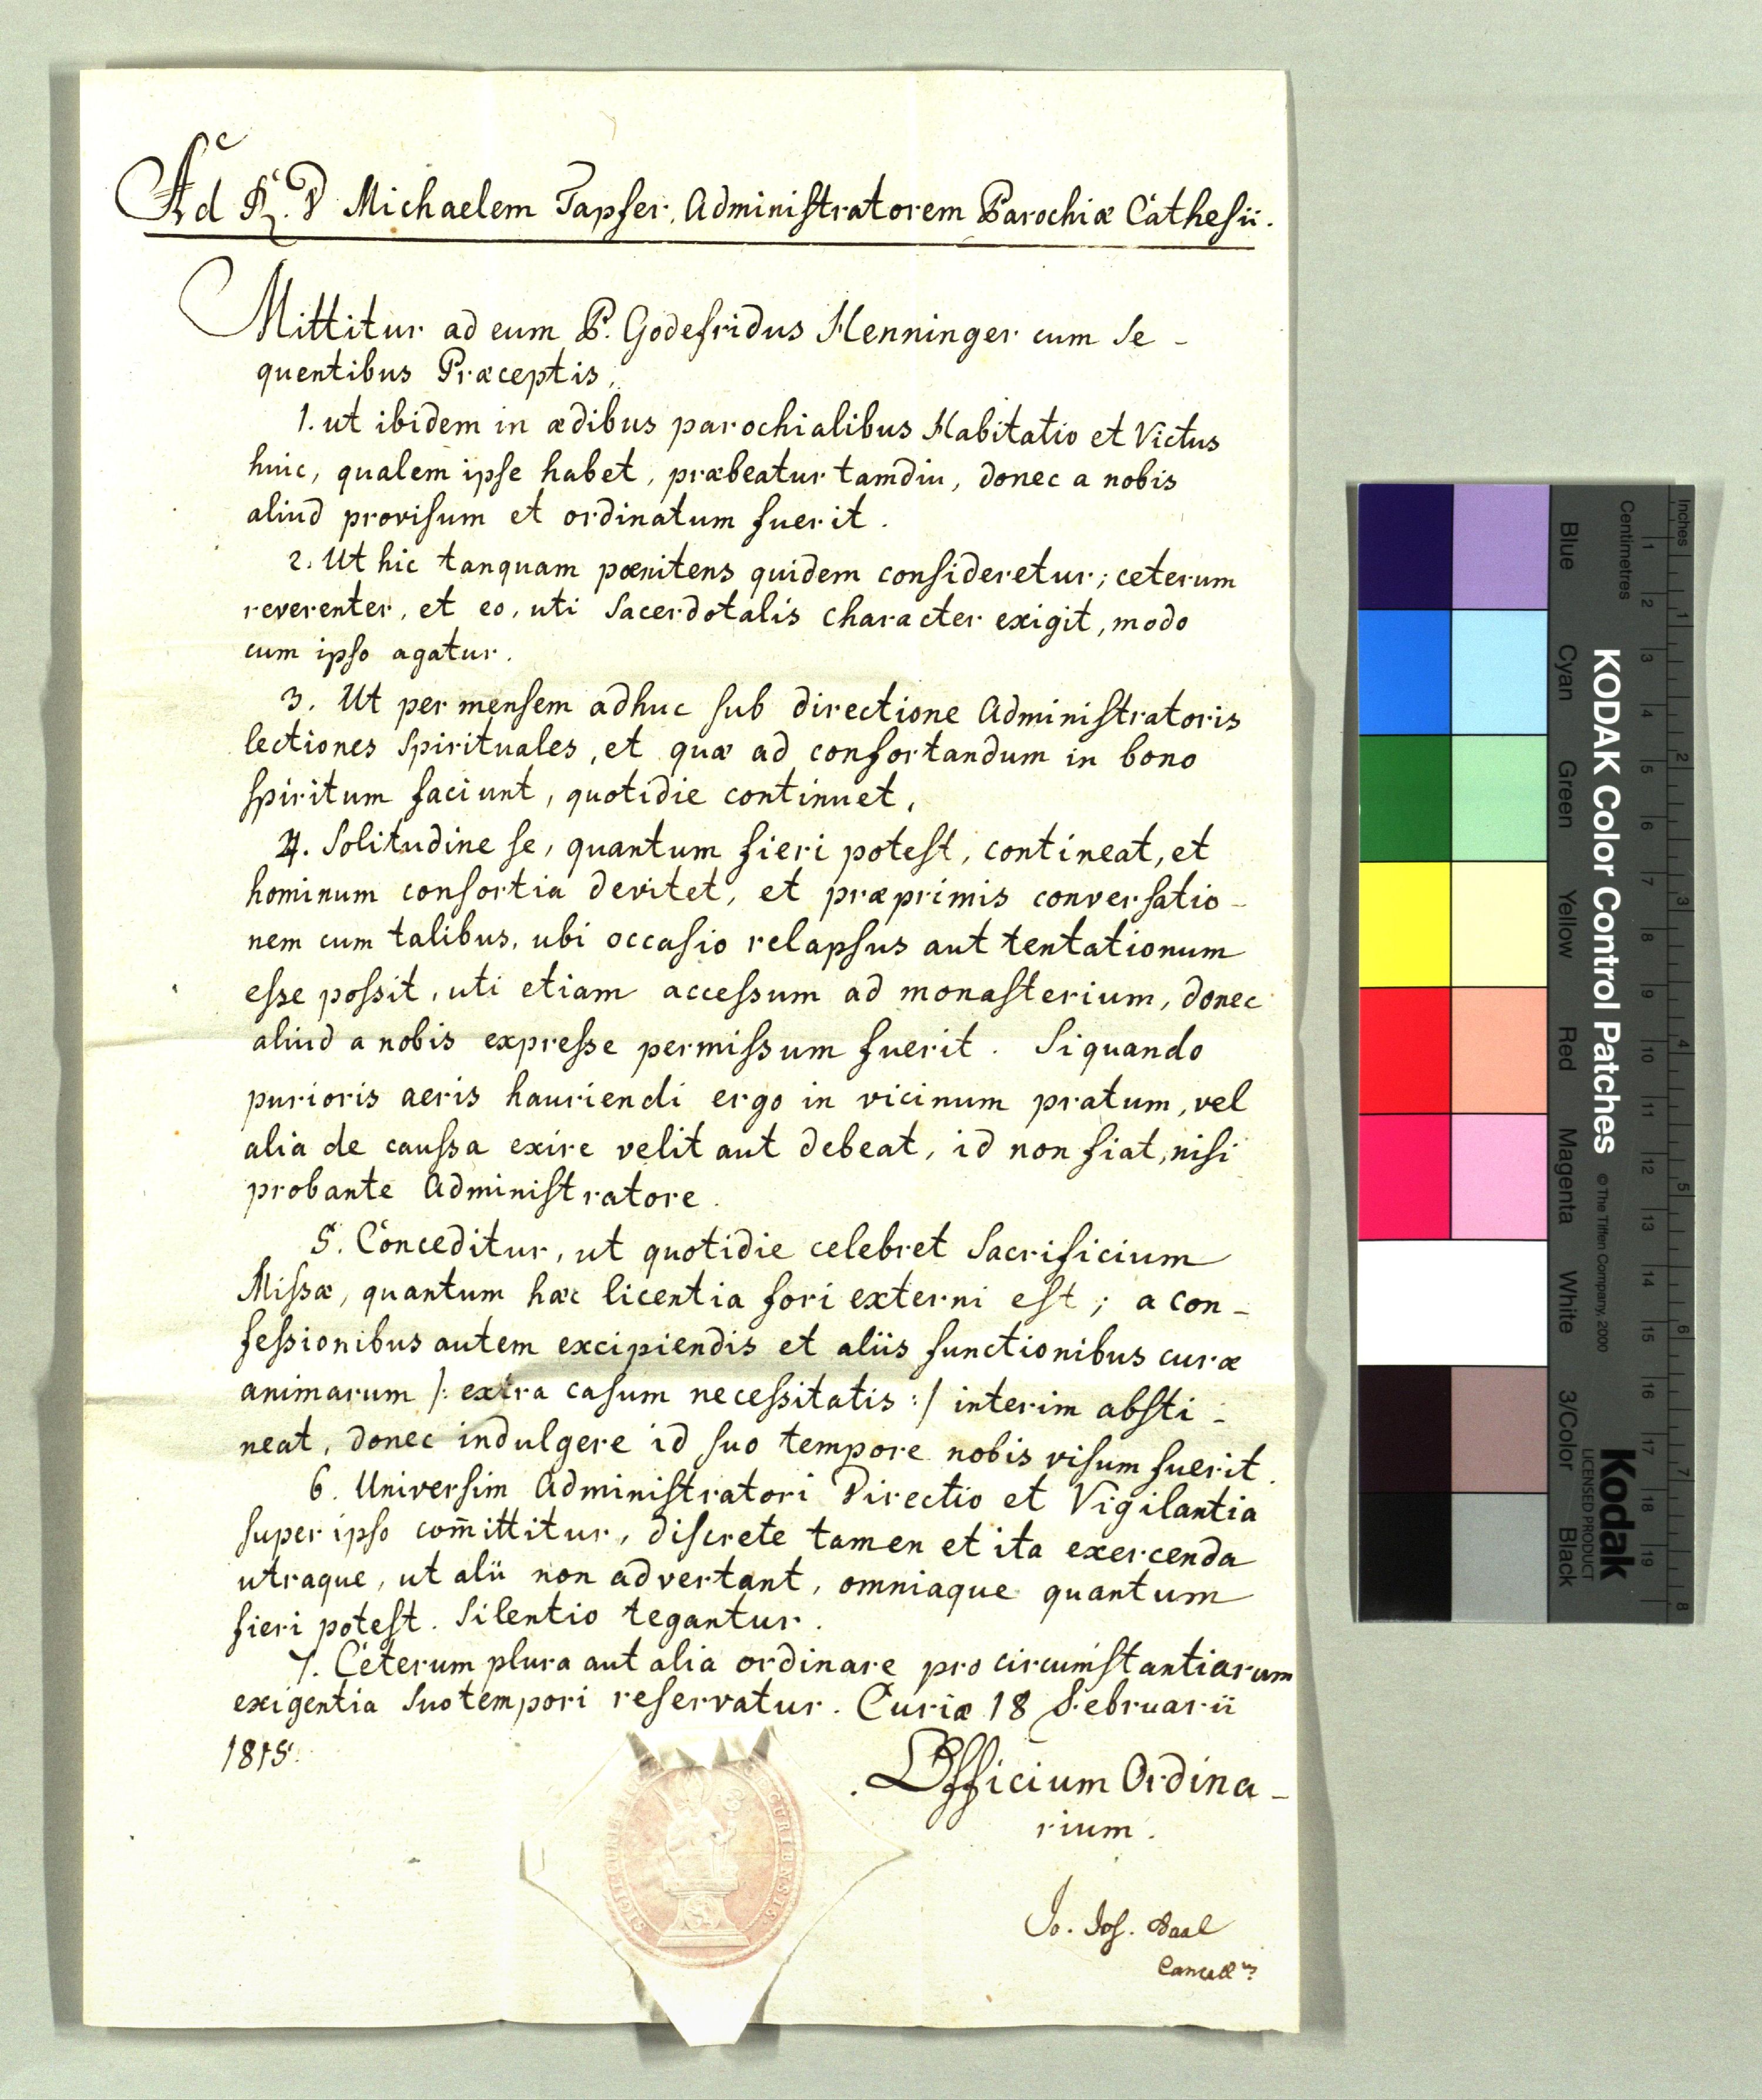 Ad R. D Michaelem Tapfer, Administratorem Parochiæ Cathesii.
Mittitur ad eum P. Godefridus Henninger cum se-
quentibus Præceptis,
1. ut ibidem in ædibus parochialibus Habitatio et Victus
huic, qualem ipse habet, præbeatur tamdiu, donec a nobis
aliud provisum et ordinatum fuerit.
2. Ut hic tanquam pœnitens quidem consideretur; ceterum
reverenter, et eo, uti Sacerdotalis character exigit, modo
cum ipso agatur.
3. Ut per mensem adhuc sub directione Administratoris
lectiones spirituales, et quæ ad confortandum in bono
spiritum faciunt, quotidie continuet,
4. Solitudine se, quantum fieri potest, contineat, et
hominum consortia devitet, et præprimis conversatio-
nem cum talibus, ubi occasio relapsus aut tentationum
esse possit, uti etiam accessum ad monasterium, donec
aliud a nobis expresse permissum fuerit. Siquando
purioris aeris hauriendi ergo in vicinum pratum, vel
alia de caussa exire velit aut debeat, id non fiat, nisi
probante Administratore.
5. Conceditur, ut quotidie celebret Sacrificium
Missæ, quantum hæc licentia fori externi est; a con-
fessionibus autem excipiendis et aliis functionibus curæ
animarum /: extra casum necessitatis :/ interim absti-
neat, donec indulgere id suo tempore nobis visum fuerit.
6. Universim Administratori Directio et Vigilantia
super ipso com̅ittitur, discrete tamen et ita exercenda
utraque, ut alii non advertant, omniaque quantum
fieri potest. Silentio tegantur.
7. Ceterum plura aut alia ordinare pro circumstantiarum
exigentia suo tempori reservatur. Curiæ 18 Februarii
1815.
Officium Ordina-
rium.
Jo. Jos. Baal
Cancell
CURIENSIS
KODAK Color Control Patches
© The Tiffen Company, 2000
Kodak
LICENSED PRODUCT
Inches
1 2 3 4 5 6 7 8
Centimetres
1 2 3 4 5 6 7 8 9 10 11 12 13 14 15 16 17 18 19
Blue Cyan Green Yellow Red Magenta White 3/Color Black